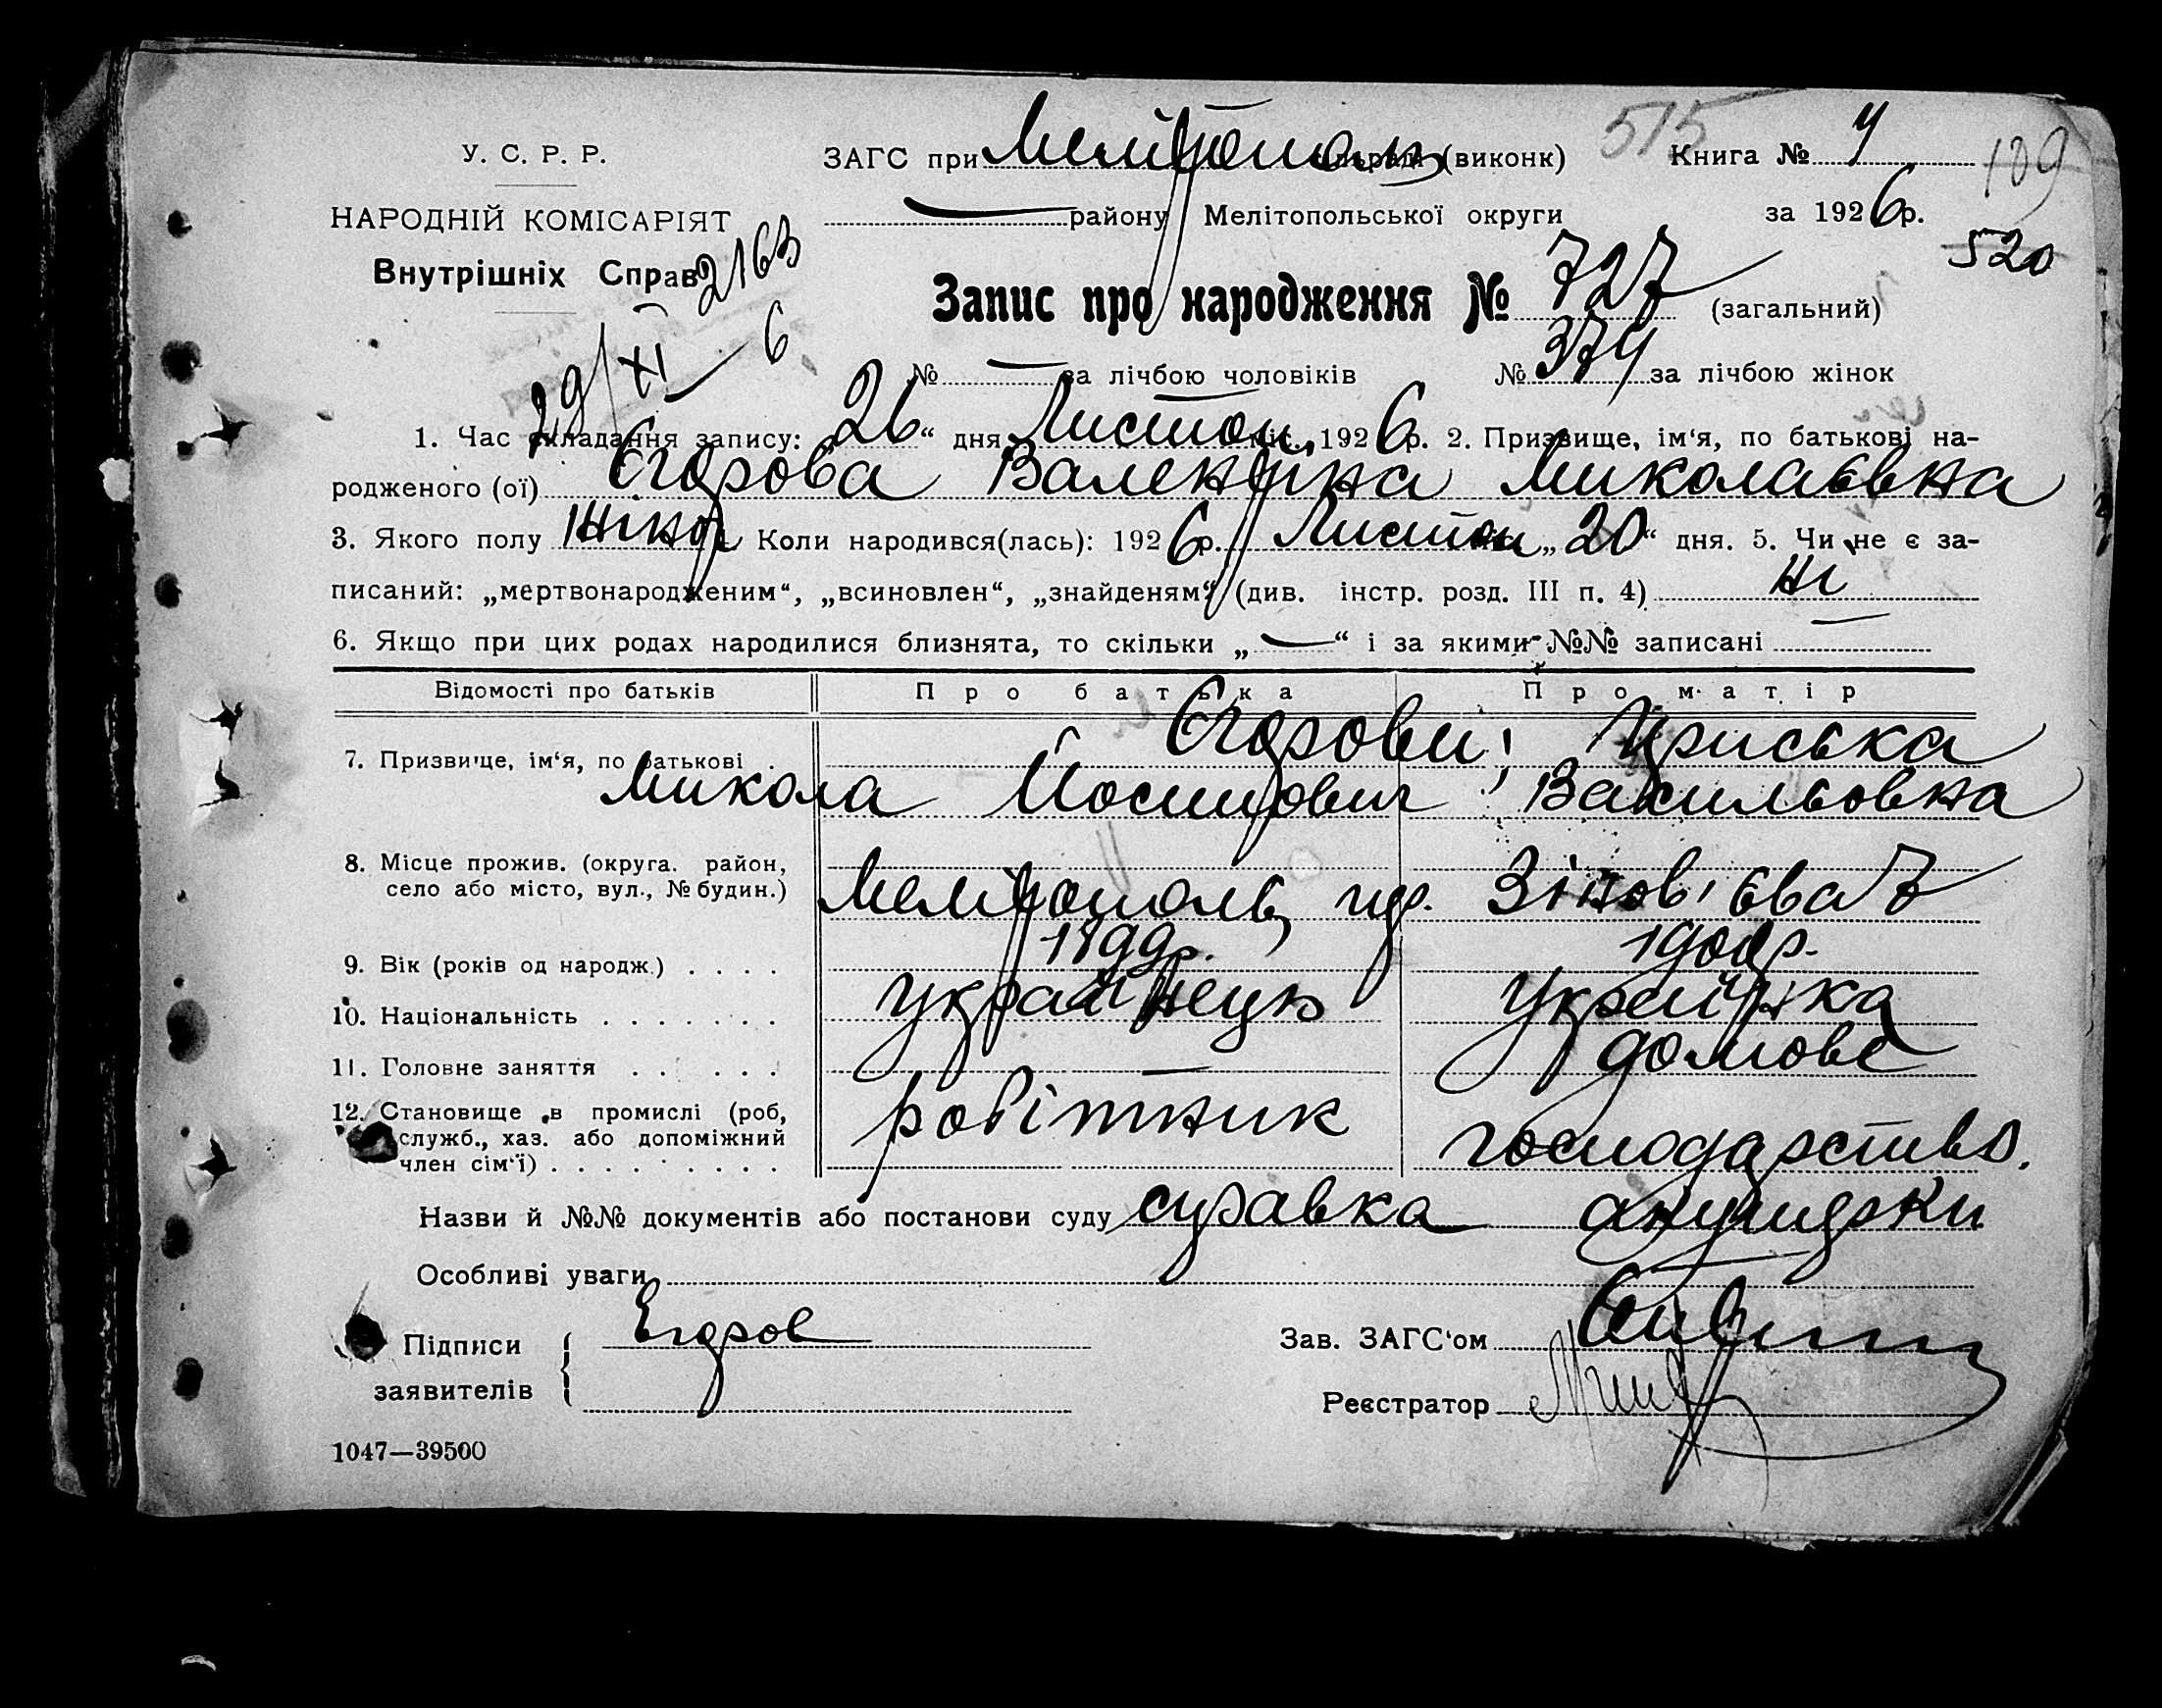 У. С. Р. Р.
НАРОДНІЙ КОМІСАРІЯТ
Внутрішніх Справ
2163
29/XI 6
ЗАГС при Мелітополь (виконк)
515
Книга № 4
109
району Мелітопольської округи
за 1926 р.
520
Запис про народження № 727 (загальний)
№ — за лічбою чоловіків № 374 за лічбою жінок
1. Час складання запису: 26 “ дня Листоп. міс. 1926 р. 2. Призвище, ім‘я, по батькові на-
родженого (ої) Єгорова Валентина Миколаєвна
3. Якого полу жіноч. Коли народився(лась): 1926 р. Листоп „ 20 “ дня. 5. Чи не є за-
писаний: „мертвонародженим“, „всиновлен“, „знайденям“ (див. інстр. розд. III п. 4) ні
6. Якщо при цих родах народилися близнята, то скільки „ — “ і за якими №№ записані
Відомості про батьків Про батька Про матір
7. Призвище, ім‘я, по батькові . Єгорови; Ириська
Микола Йосипович Васильовна
8. Місце прожив. (округа. район,
село або місто, вул., № будин.) Мелітополь, пр. Зінов'єва 7
9. Вік (років од народж.) . . . . 1899р. р.
10. Національність . . . . . . . українець Українка
11. Головне заняття . . . . . . — домове
12. Становище в промислі (роб,
служб., хаз. або допоміжний
член сім‘ї) . . . . . . . . . робітник господарство.
Назви й №№ документів або постанови суду справка акушерки
Особливі уваги —
Підписи
заявителів
Егоров
Зав. ЗАГС‘ом
Реєстратор
1047—39500